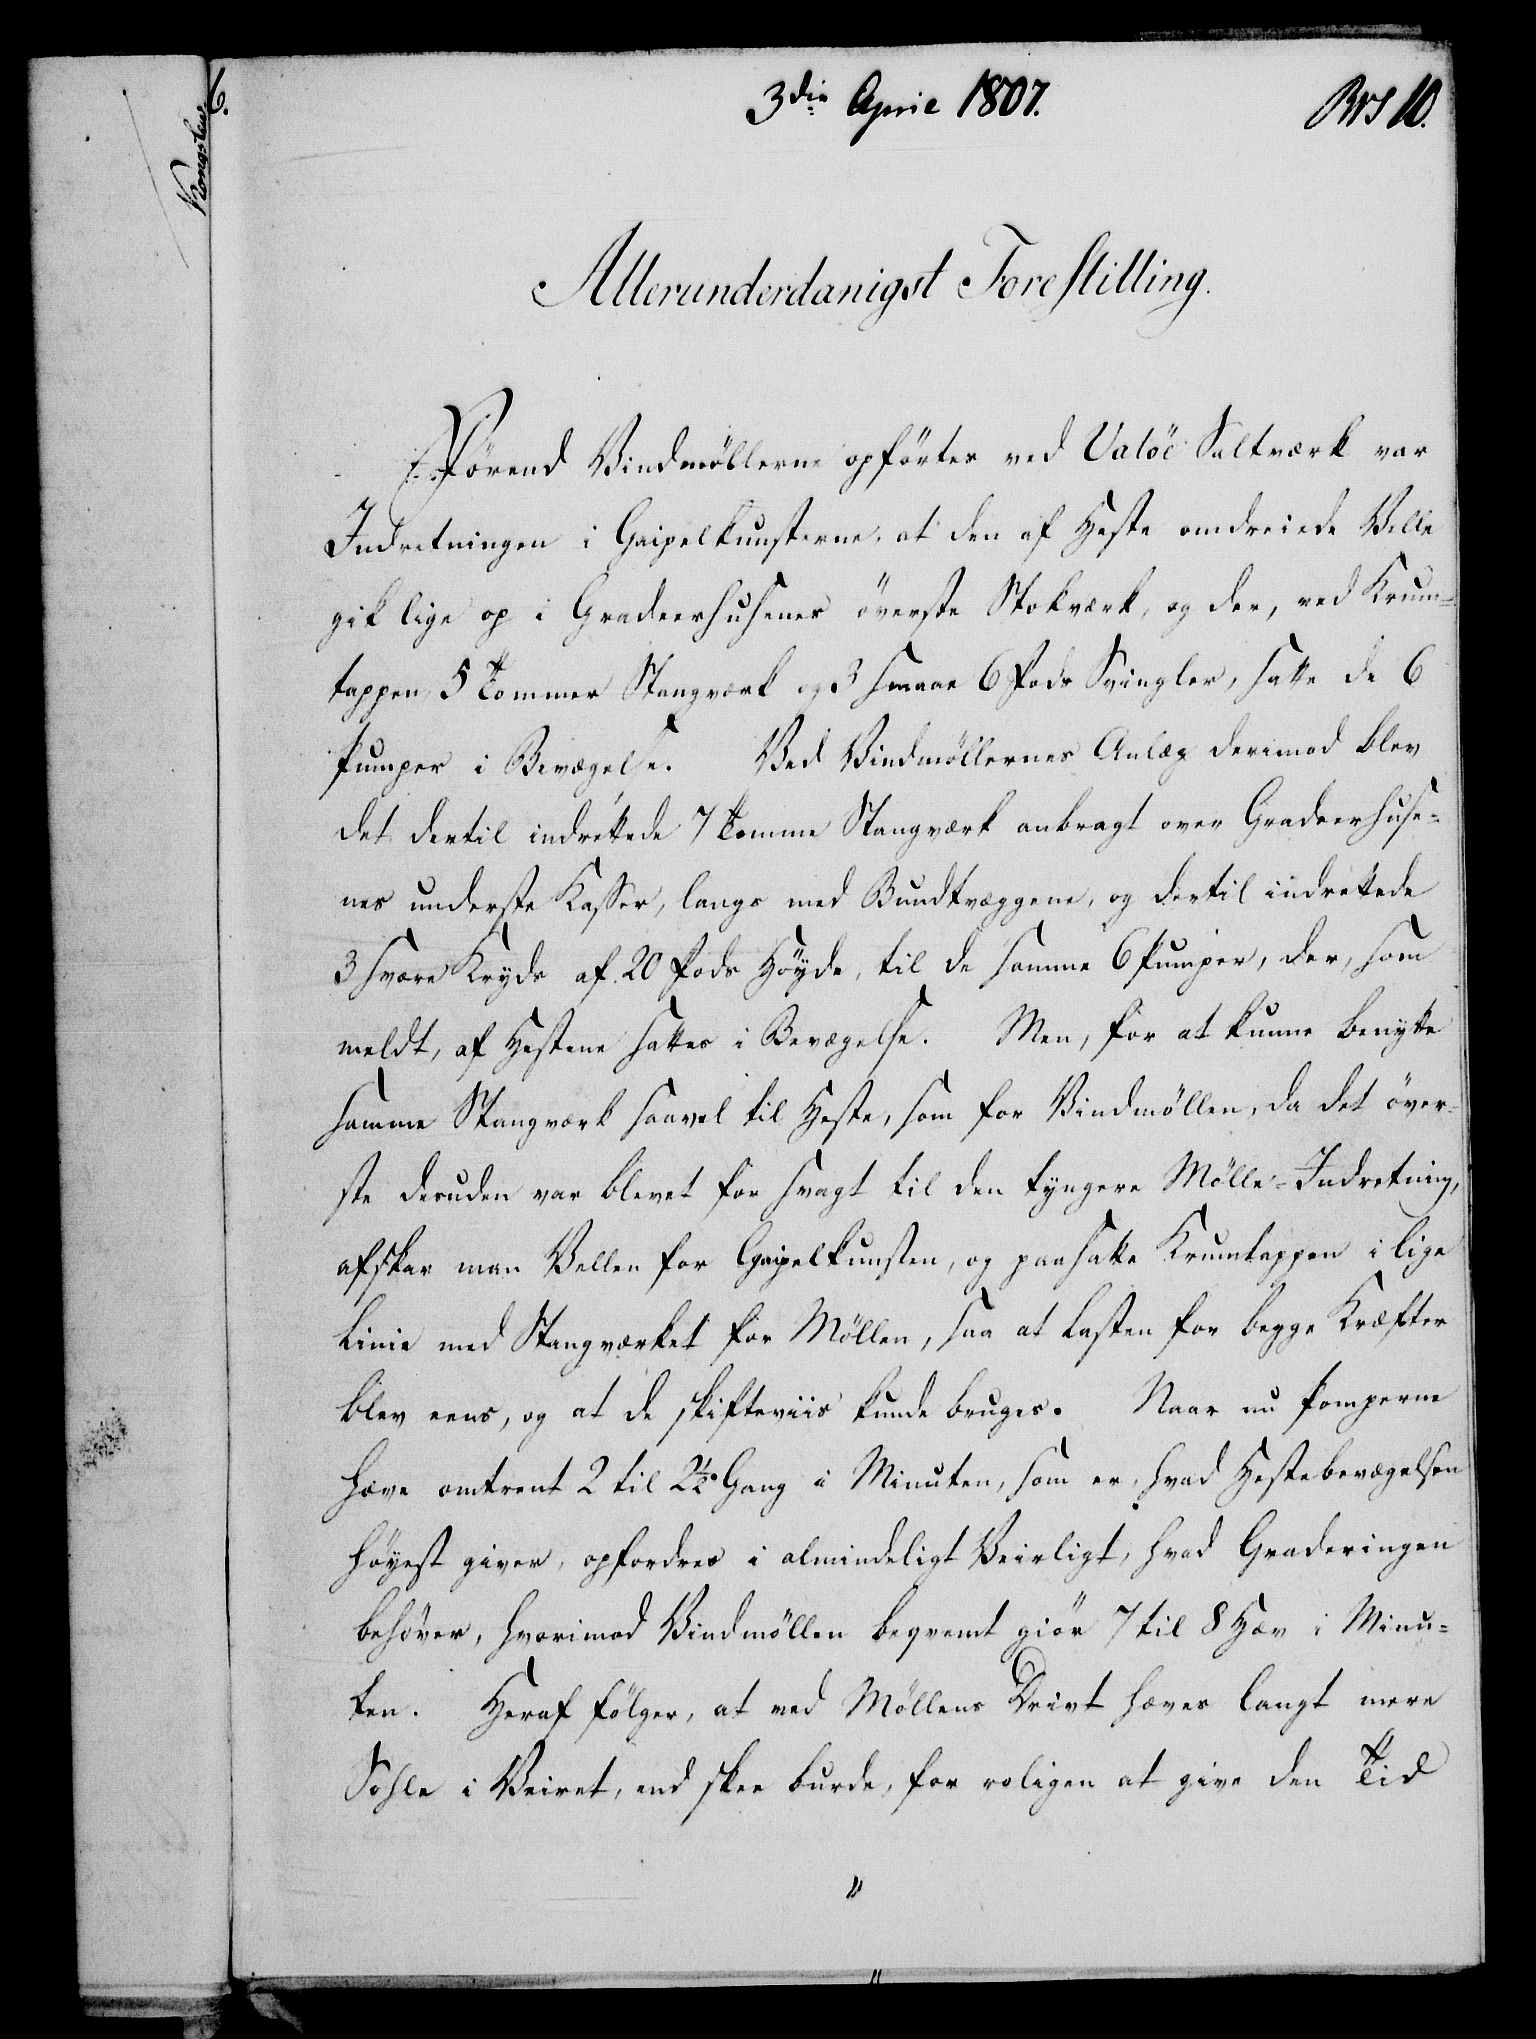 3die April 1807.
No 10.
6.
Kongsteu
Allerunderdanigst Forestilling.
Förend Vindmöllerne opförtes ved Valöe Saltværk var
Indretningen i Gaipelkunsterne, at den af Heste omdreiede Velle
gik lige op i Gradeerhusenes överste Stokværk, og der, ved Krum-
tappen, 5 Tommer Stangværk og 3 smaae 6 Fods Svingler, satte de 6
Pumper i Bevægelse. Ved Vindmöllernes Anlæg derimod blev
det dertil indrettede 7 Tomme Stangværk anbragt over Gradeerhuse-
nes underste Kasser, langs med Bundtvæggene, og dertil indrettede
3 svære Kryds af 20 Fods Höyde, til de samme 6 Pumper, der, som
meldt, af Hestene sattes i Bevægelse. Men, for at kunne benytte
samme Stangværk saavel til Heste, som for Vindmöllen, da det över-
ste desuden var blevet for svagt til den tyngere Mölle-Indretning,
afskar man Vellen for Gaipelkunsten, og paasatte Krumtappen i lige
Linie med Stangværket for Möllen, saa at Lasten for begge Kræfter
blev eens, og at de skifteviis kunde bruges. Naar nu Pomperne
hæve omtrent 2 til 2½ Gang i Minuten, som er, hvad Hestebevægelsen
höyest giver, opfordres i almindeligt Veirligt, hvad Graderingen
behöver, hvorimod Vindmöllen beqvemt giör 7 til 8 Hæv i Minu-
ten. Heraf fölger, at ved Möllens Drivt hæves langt mere
Sohle i Veiret, end skee burde, for roligen at give den Tid